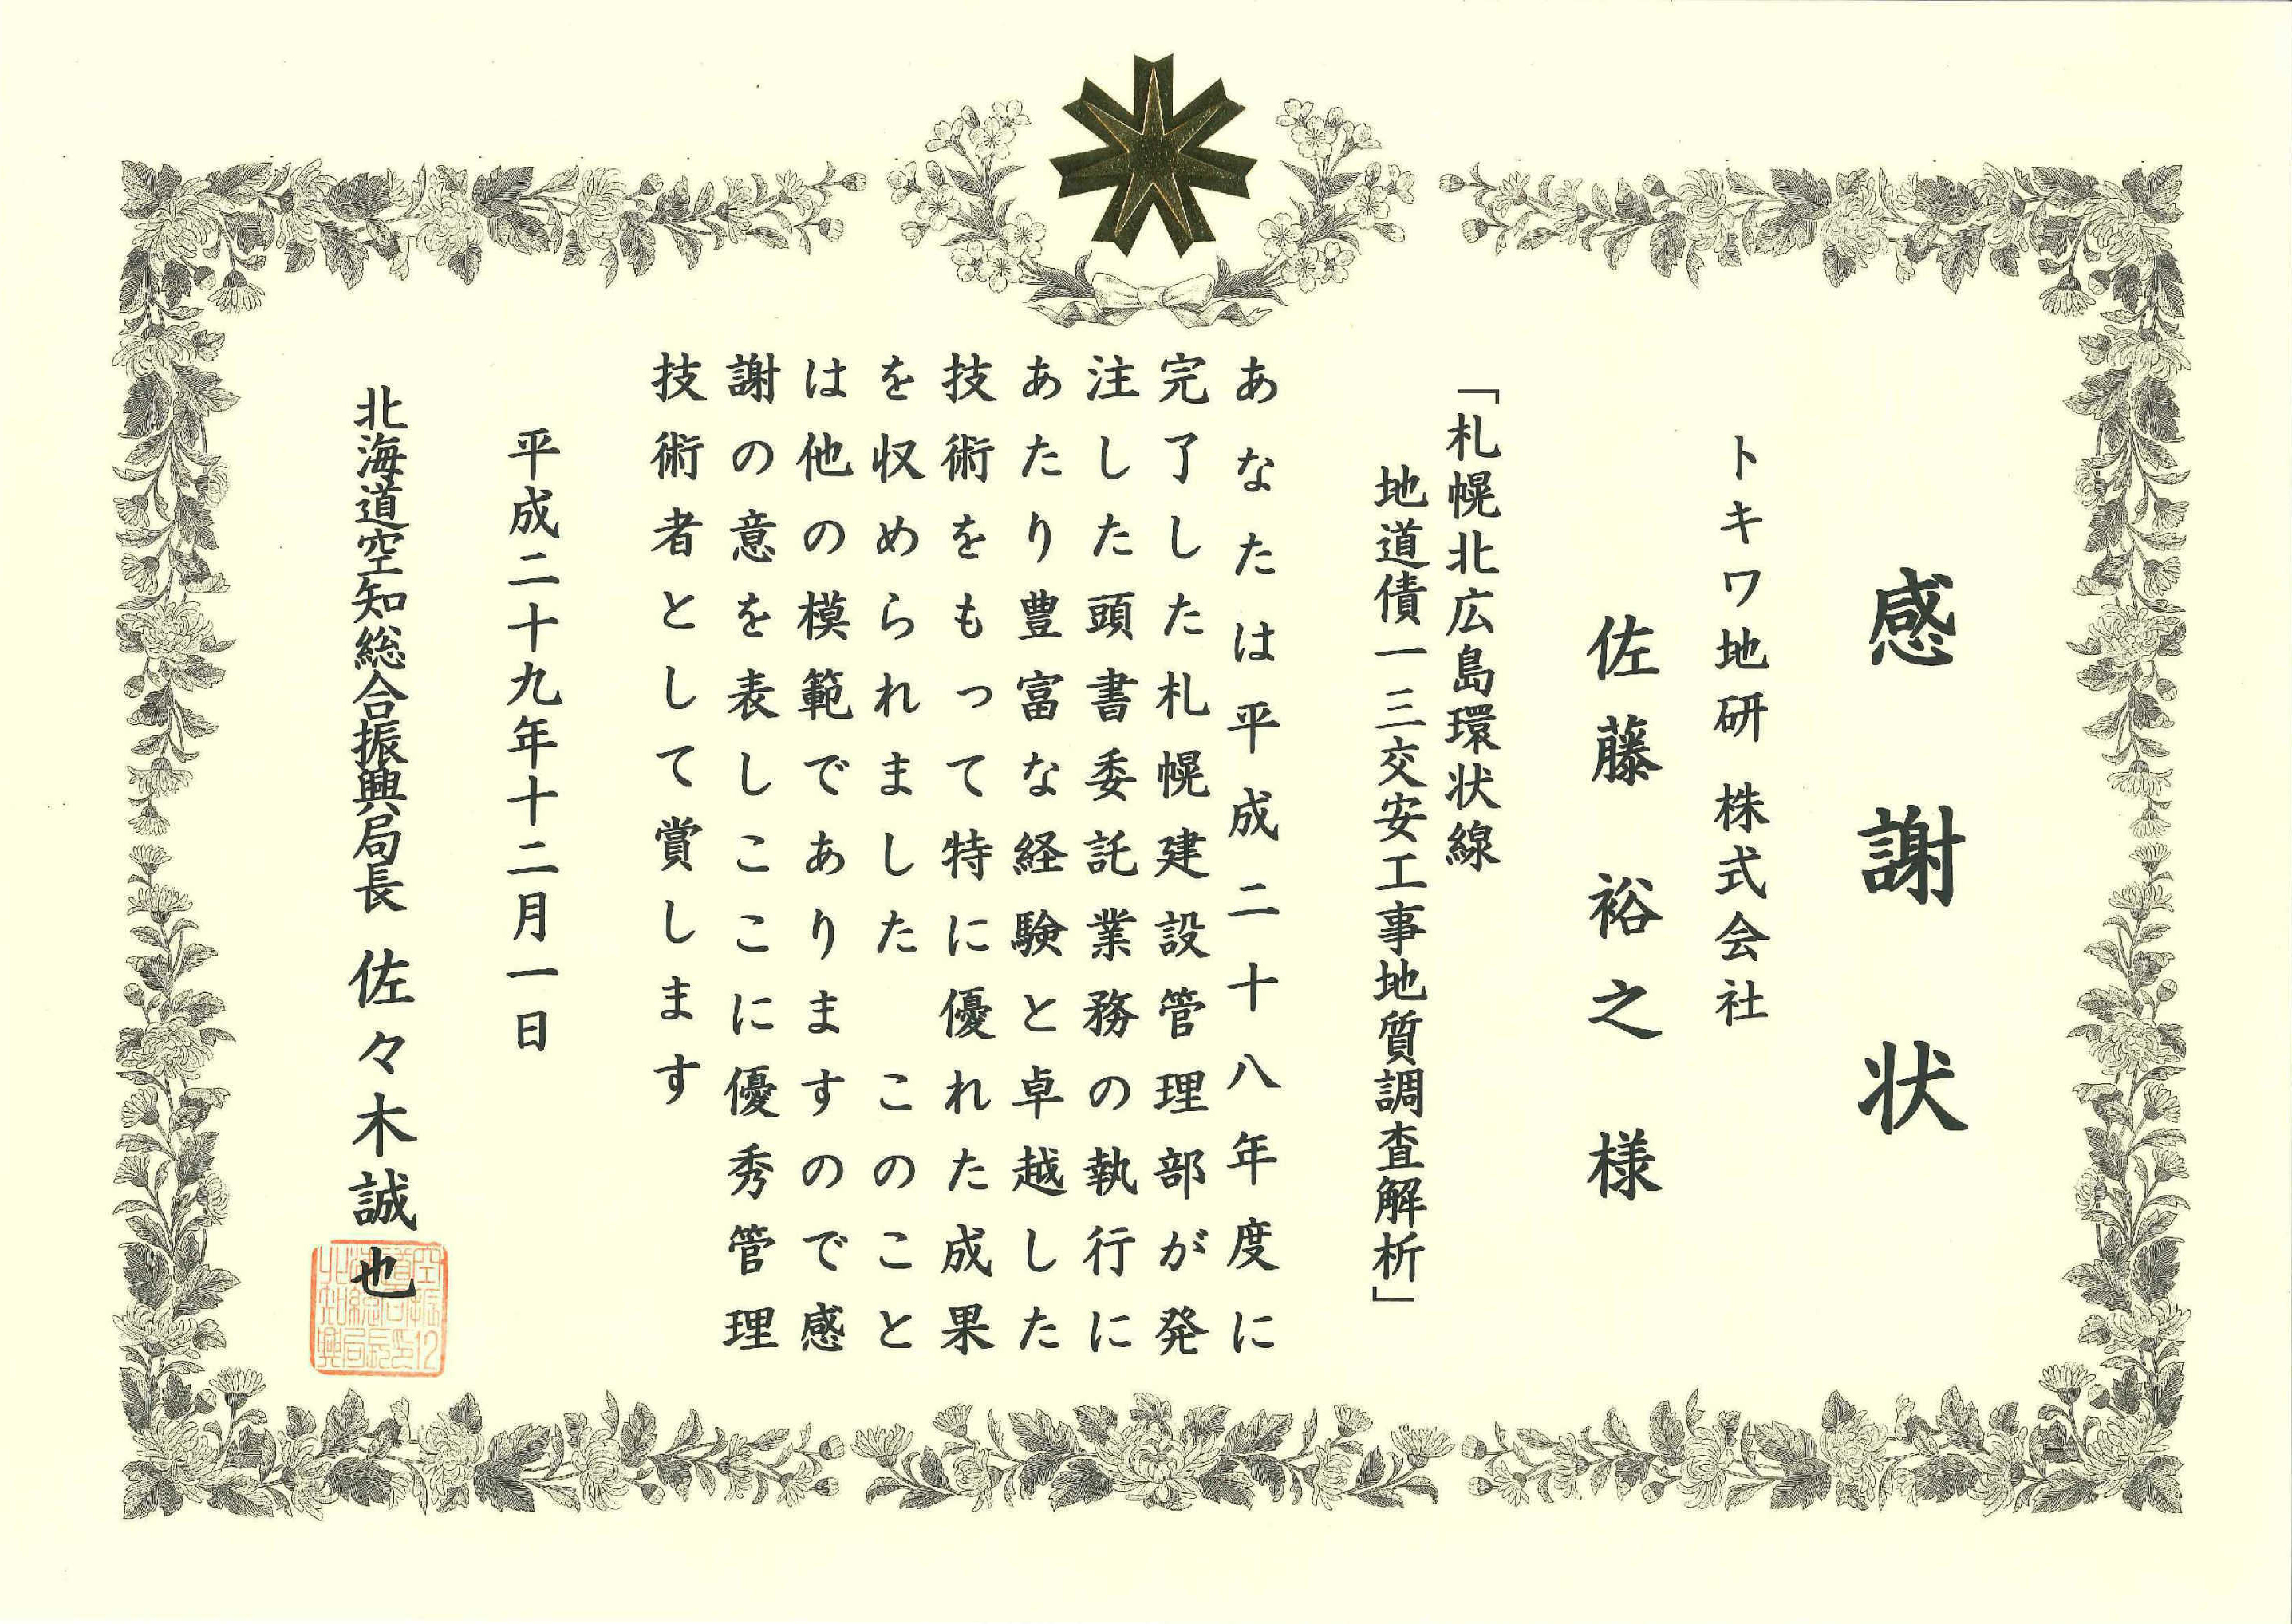 感謝状
トキワ地研 株式会社
佐藤裕之様
「札幌北広島環状線
地道債一三交安工事地質調査解析」
あなたは平成二十八年度に
完了した札幌建設管理部が発
注した頭書委託業務の執行に
あたり豊富な経験と卓越した
技術をもって特に優れた成果
を収められました　このこと
は他の模範でありますので感
謝の意を表しここに優秀管理
技術者として賞します
平成二十九年十二月一日
北海道空知総合振興局長 佐々木誠也